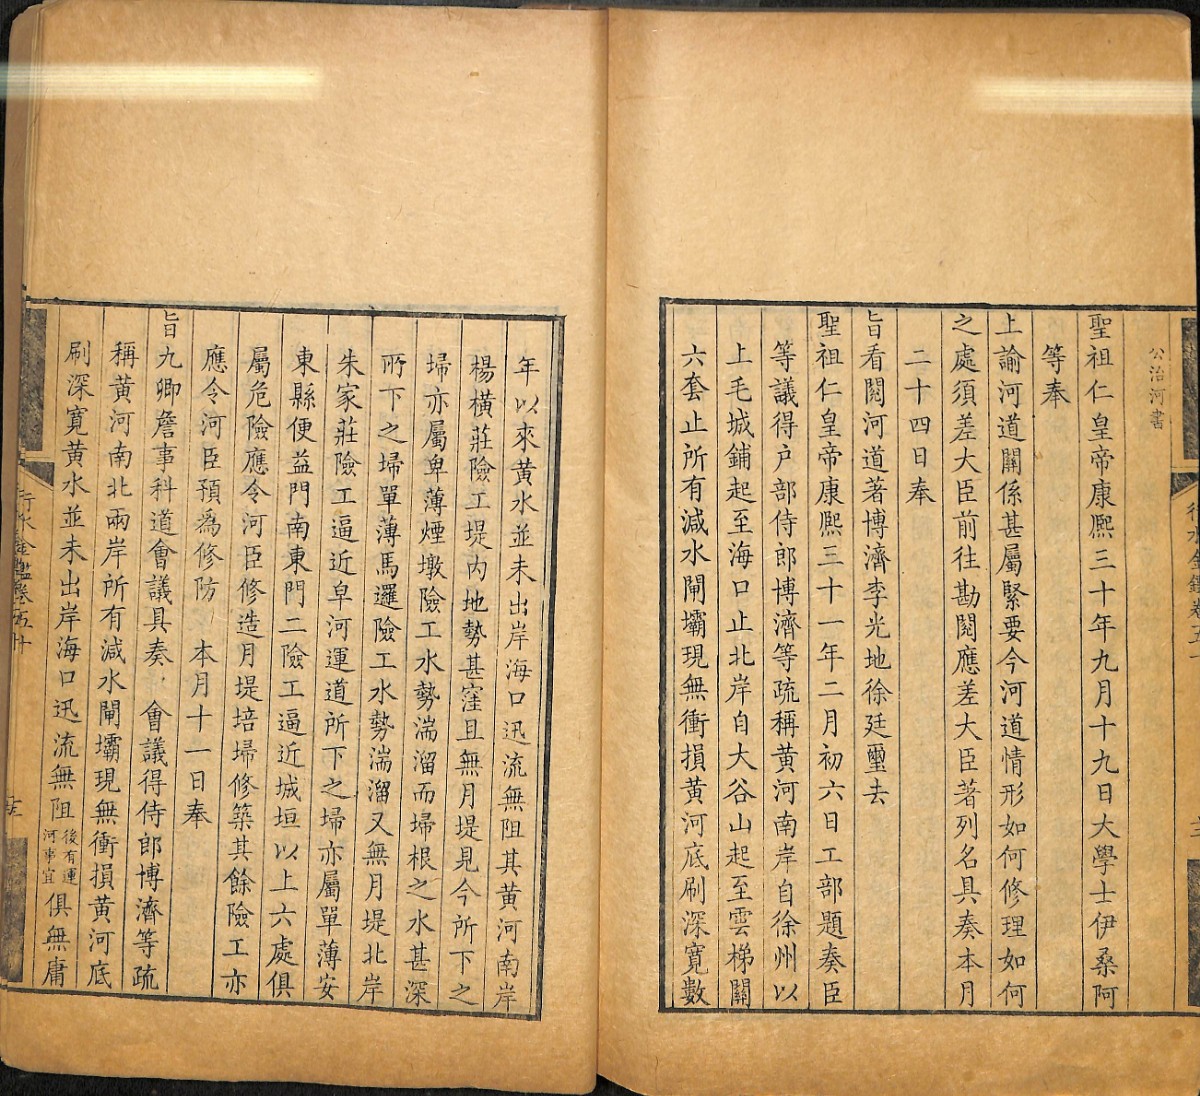 公治河書
聖祖仁皇帝康熙三十年九月十九日大學士伊桑阿
等奉
上諭河道關係甚屬緊要今河道情形如何修理如何
之處須差大臣前往勘閱應差大臣著列名具奏本月
二十四日奉
旨看閱河道著博濟李光地徐廷璽去
聖祖仁皇帝康熙三十一年二月初六日工部題奏臣
等議得户部侍郎博濟等疏稱黃河南岸自徐州以
上毛城鋪起至海口止北岸自大谷山起至雲梯關
六套止所有減水閘壩現無衝損黃河底刷深寬數
年以來黃水並未出岸海口迅流無阻其黃河南岸
楊橫莊險工堤內地勢甚窪且無月堤見今所下之
埽亦屬卑薄煙墩險工水勢湍溜而埽根之水甚深
所下之埽單薄馬邏險工水勢湍溜又無月堤北岸
朱家莊險工逼近皁河運道所下之埽亦屬單薄安
東縣便益門南東門二險工逼近城垣以上六處俱
屬危險應令河臣修造月堤培埽修築其餘險工亦
應令河臣預為修防 本月十一日奉
旨九卿詹事科道會議具奏 會議得侍郎博濟等疏
稱黃河南北兩岸所有減水閘壩現無衝損黃河底
刷深寬黃水並未出岸海口迅流無阻後有運河事宜俱無庸
行水金鑑卷五十